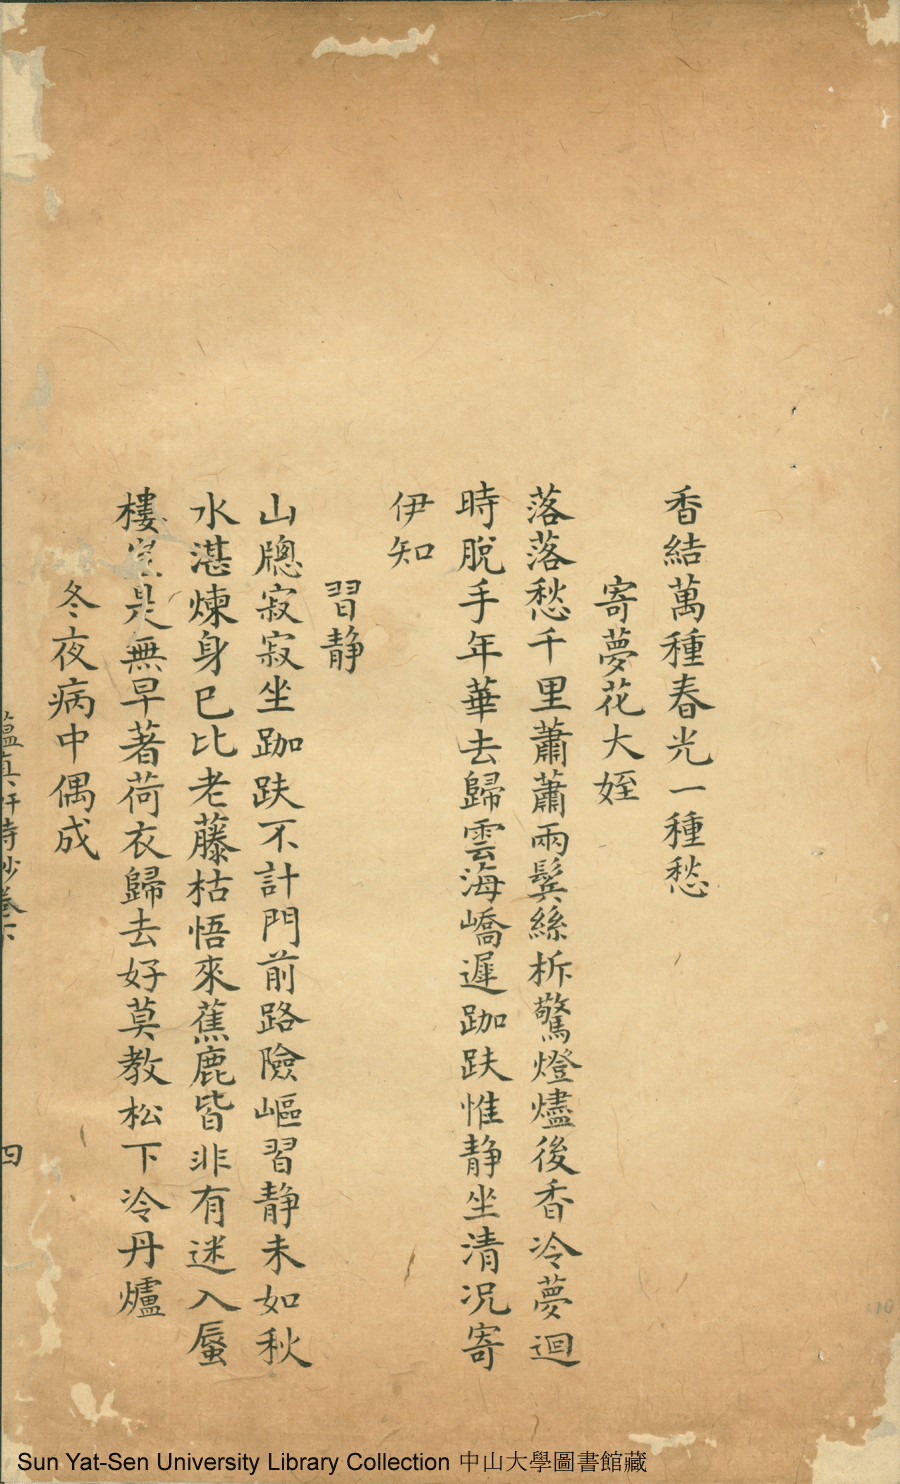 香結萬種春光一種愁
寄夢花大姪
落落愁千里蕭蕭兩鬂絲柝驚燈燼後香冷夢迴
時脫手年華去歸雲海嶠遲跏趺惟静坐清况寄
伊知
習静
山牕寂寂坐跏趺不計門前路險嶇習静未如秋
水湛煉身已比老藤枯悟來蕉鹿皆非有迷入蜃
樓豈是無早著荷衣歸去好莫教松下冷丹爐
冬夜病中偶成
蘊真軒詩鈔卷下
四
Sun Yat-Sen University Library Collection 中山大學圖書館藏